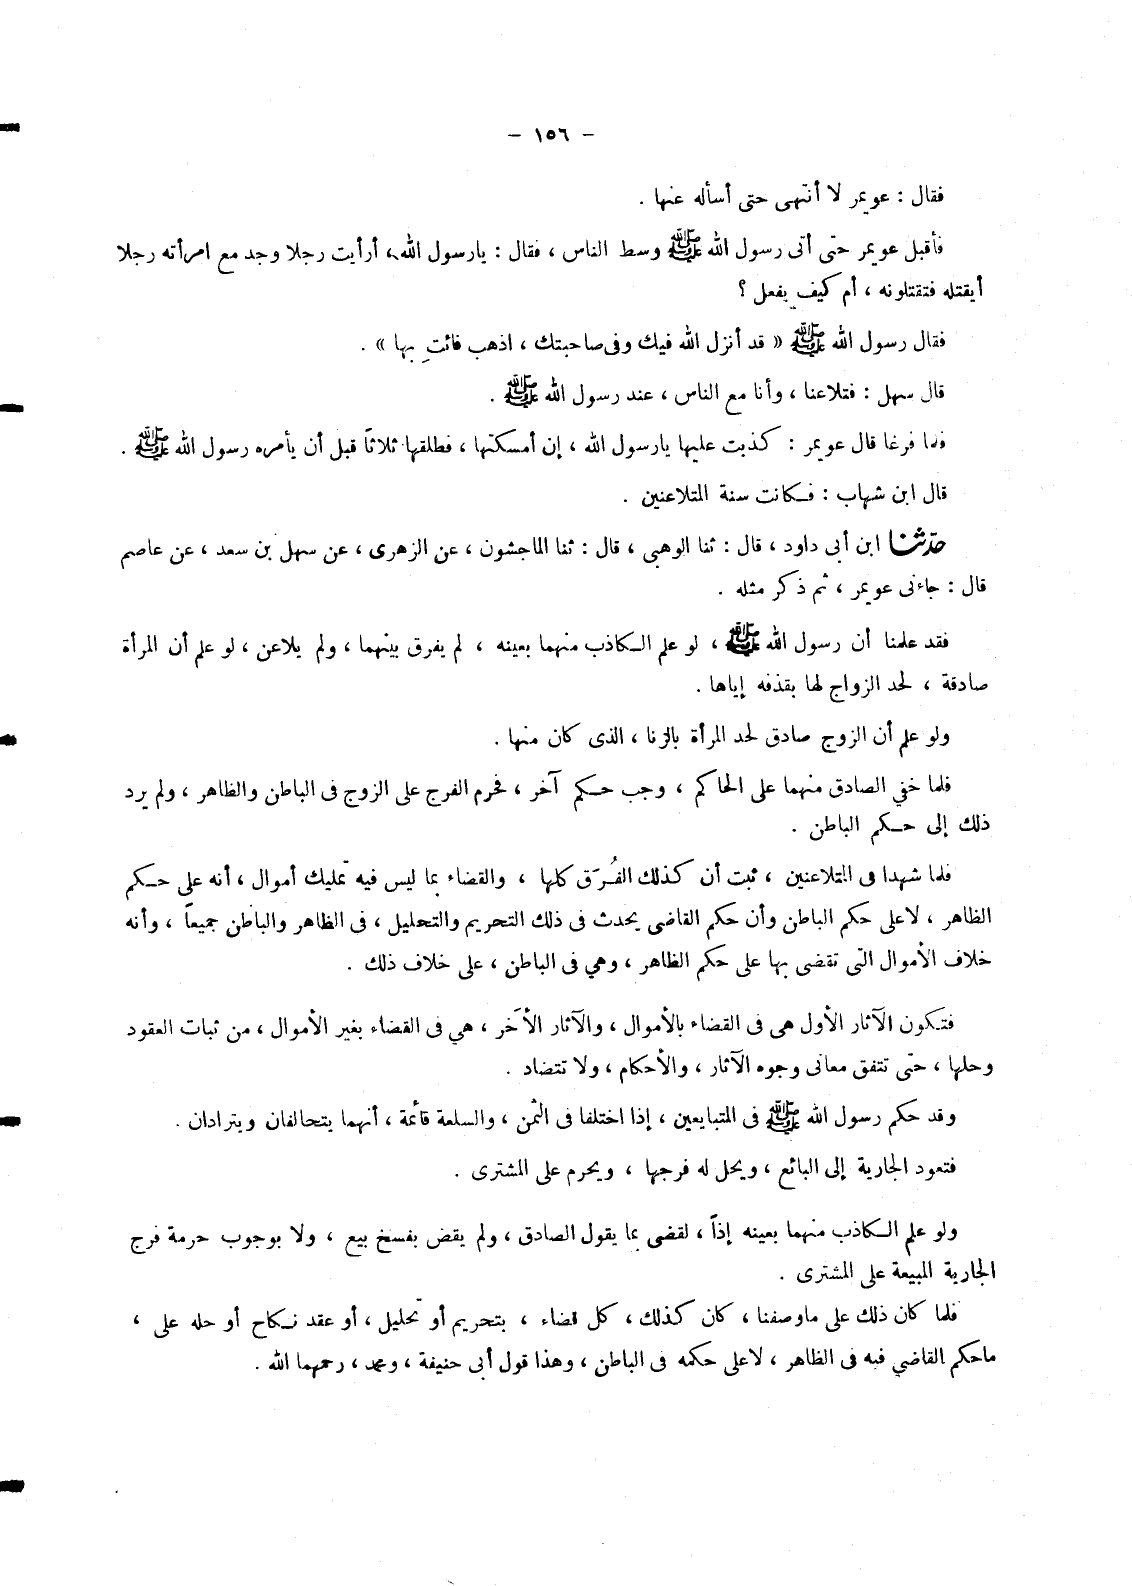 – ١٥٦ –
فقال : عويمر لا أنتهى حتى أسأله عنها .
فأقبل عويمر حتى أتى رسول الله ﷺ وسط الناس ، فقال : يارسول الله، أرأيت رجلا وجد مع امرأته رجلا
أيقتله فتقتلونه ، أم كيف يفعل ؟
فقال رسول الله ﷺ « قد أنزل الله فيك وفى صاحبتك ، اذهب فائتِ بها » .
قال سهل : فتلاعنا ، وأنا مع الناس ، عند رسول الله ﷺ .
فلما فرغا قال عويمر : كذبت عليها يارسول الله ، إن أمسكتها ، فطلقها ثلاثاً قبل أن يأمره رسول الله ﷺ .
قال ابن شهاب : فكانت سنة المتلاعنين .
حدّثنا ابن أبى داود ، قال : ثنا الوهبى ، قال : ثنا الماجشون ، عن الزهرى ، عن سهل بن سعد ، عن عاصم
قال : جاءنى عويمر ، ثم ذكر مثله .
فقد علمنا أن رسول الله ﷺ ، لو علم الكاذب منهما بعينه ، لم يفرق بينهما ، ولم يلاعن ، لو علم أن المرأة
صادقة ، لحد الزواج لها بقذفه إياها .
ولو علم أن الزوج صادق لحد المرأة بالزنا ، الذى كان منها .
فلما خفي الصادق منهما على الحاكم ، وجب حكم آخر ، فحرم الفرج على الزوج فى الباطن والظاهر ، ولم يرد
ذلك إلى حكم الباطن .
فلما شهدا فى المتلاعنين ، ثبت أن كذلك الفُرَق كلها ، والقضاء بما ليس فيه تمليك أموال ، أنه على حكم
الظاهر ، لاعلى حكم الباطن وأن حكم القاضى يحدث فى ذلك التحريم والتحليل ، فى الظاهر والباطن جميعاً ، وأنه
خلاف الأموال التى تقضى بها على حكم الظاهر ، وهي فى الباطن ، على خلاف ذلك .
فتكون الآثار الأول هى فى القضاء بالأموال ، والآثار الأخَر ، هي فى القضاء بغير الأموال ، من ثبات العقود
وحلها ، حتى تتفق معانى وجوه الآثار ، والأحكام ، ولا تتضاد .
وقد حكم رسول الله ﷺ فى المتبايعين ، إذا اختلفا فى الثمن ، والسلعة قائمة ، أنهما يتحالفان ويترادان .
فتعود الجارية إلى البائع ، ويحل له فرجها ، ويحرم على المشترى .
ولو علم الكاذب منهما بعينه إذاً ، لقضى بما يقول الصادق ، ولم يقض بفسخ بيع ، ولا بوجوب حرمة فرج
الجارية المبيعة على المشترى .
فلما كان ذلك على ماوصفنا ، كان كذلك ، كل قضاء ، بتحريم أو تحليل ، أو عقد نكاح أو حله على ،
ماحكم القاضي فيه فى الظاهر ، لاعلى حكمه فى الباطن ، وهذا قول أبى حنيفة ، ومحمد ، رحمهما الله .